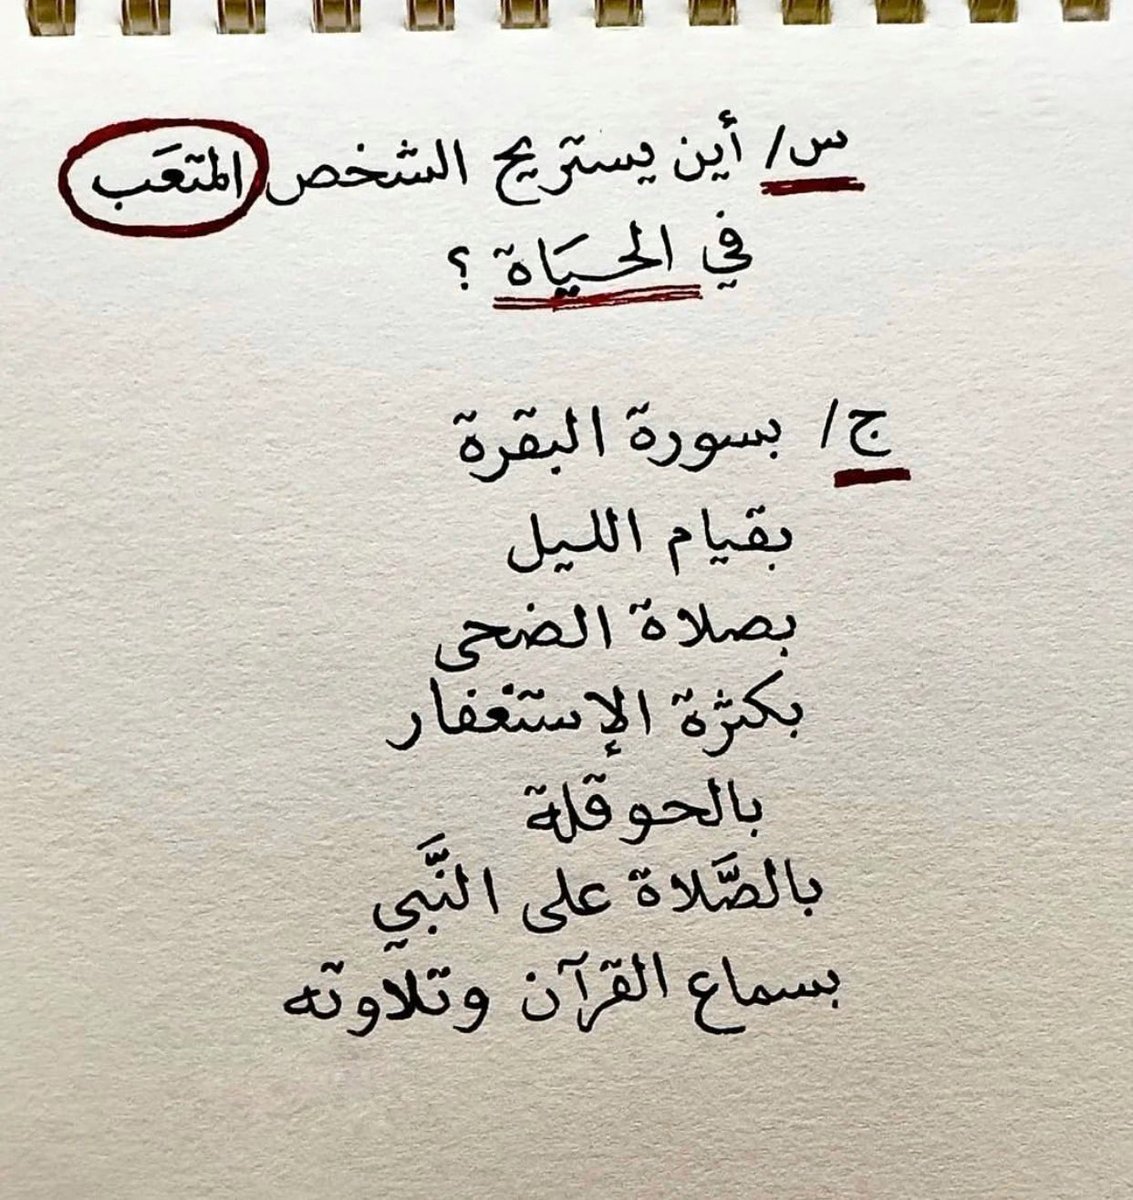 س/ أين يستريح الشخص المتعَب
في الحيَاة ؟
ج/ بسورة البقرة
بقيام الليل
بصلاة الضحى
بكثرة الإستغفار
بالحوقلة
بالصَّلاة على النَّبي
بسماع القرآن وتلاوته